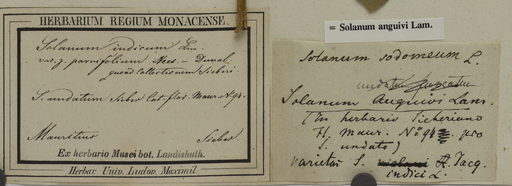 HERBARIUM REGIUM MONACENSE.
Solanum indicum Lin.
var. γ. parvifolium Nees – Dunal
quoad collectionem Sieberi.
S. undatum Sieber Cat. flor. Maur. N° 94.
Mauritius Sieber
Ex herbario Musei bot. Landishuth.
Herbar. Univ. Ludov. Maximil.
= Solanum anguivi Lam.
Solanum sodomeum L.
undatum
Solanum Anguivi Lam.
(Ex herbario Sieberiano
Fl. maur. N° 94 pro
S. undato)
varietas S. Jacq.
indici L.